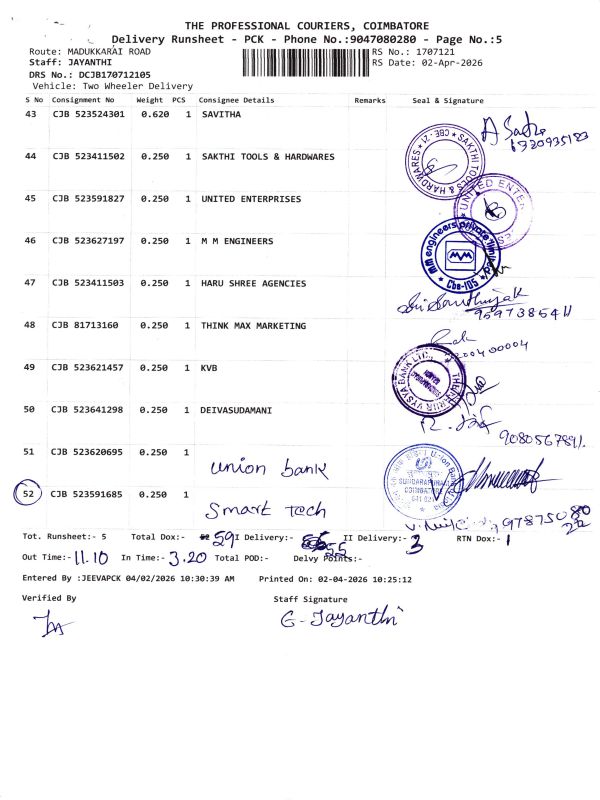 THE PROFESSIONAL COURIERS, COIMBATORE
Delivery Runsheet - PCK - Phone No.:9047080280 - Page No.:5
Route: MADUKKARAI ROAD
RS No.: 1707121
Staff: JAYANTHI
RS Date: 02-Apr-2026
DRS No.: DCJB170712105
Vehicle: Two Wheeler Delivery
S No Consignment No Weight PCS Consignee Details Remarks Seal & Signature
43 CJB 523524301 0.620 1 SAVITHA
44 CJB 523411502 0.250 1 SAKTHI TOOLS & HARDWARES
SAKTHI TOOLS & HARDWARES * CBE - 21 *
45 CJB 523591827 0.250 1 UNITED ENTERPRISES
UNITED
46 CJB 523627197 0.250 1 M M ENGINEERS
MM engineers private limited
MM
Cbe-105
47 CJB 523411503 0.250 1 HARU SHREE AGENCIES
48 CJB 81713160 0.250 1 THINK MAX MARKETING
49 CJB 523621457 0.250 1 KVB
VYSYA BANK LTD.
50 CJB 523641298 0.250 1 DEIVASUDAMANI
51 CJB 523620695 0.250 1
union bank
Union Bank
COIMBATORE
52 CJB 523591685 0.250 1
Smart Tech
Tot. Runsheet:- 5 Total Dox:- 59 I Delivery:- 55 II Delivery:- 3 RTN Dox:- 1
Out Time:- 11.10 In Time:- 3.20 Total POD:- Delvy Points:-
Entered By :JEEVAPCK 04/02/2026 10:30:39 AM Printed On: 02-04-2026 10:25:12
Verified By Staff Signature
G. Jayanthi